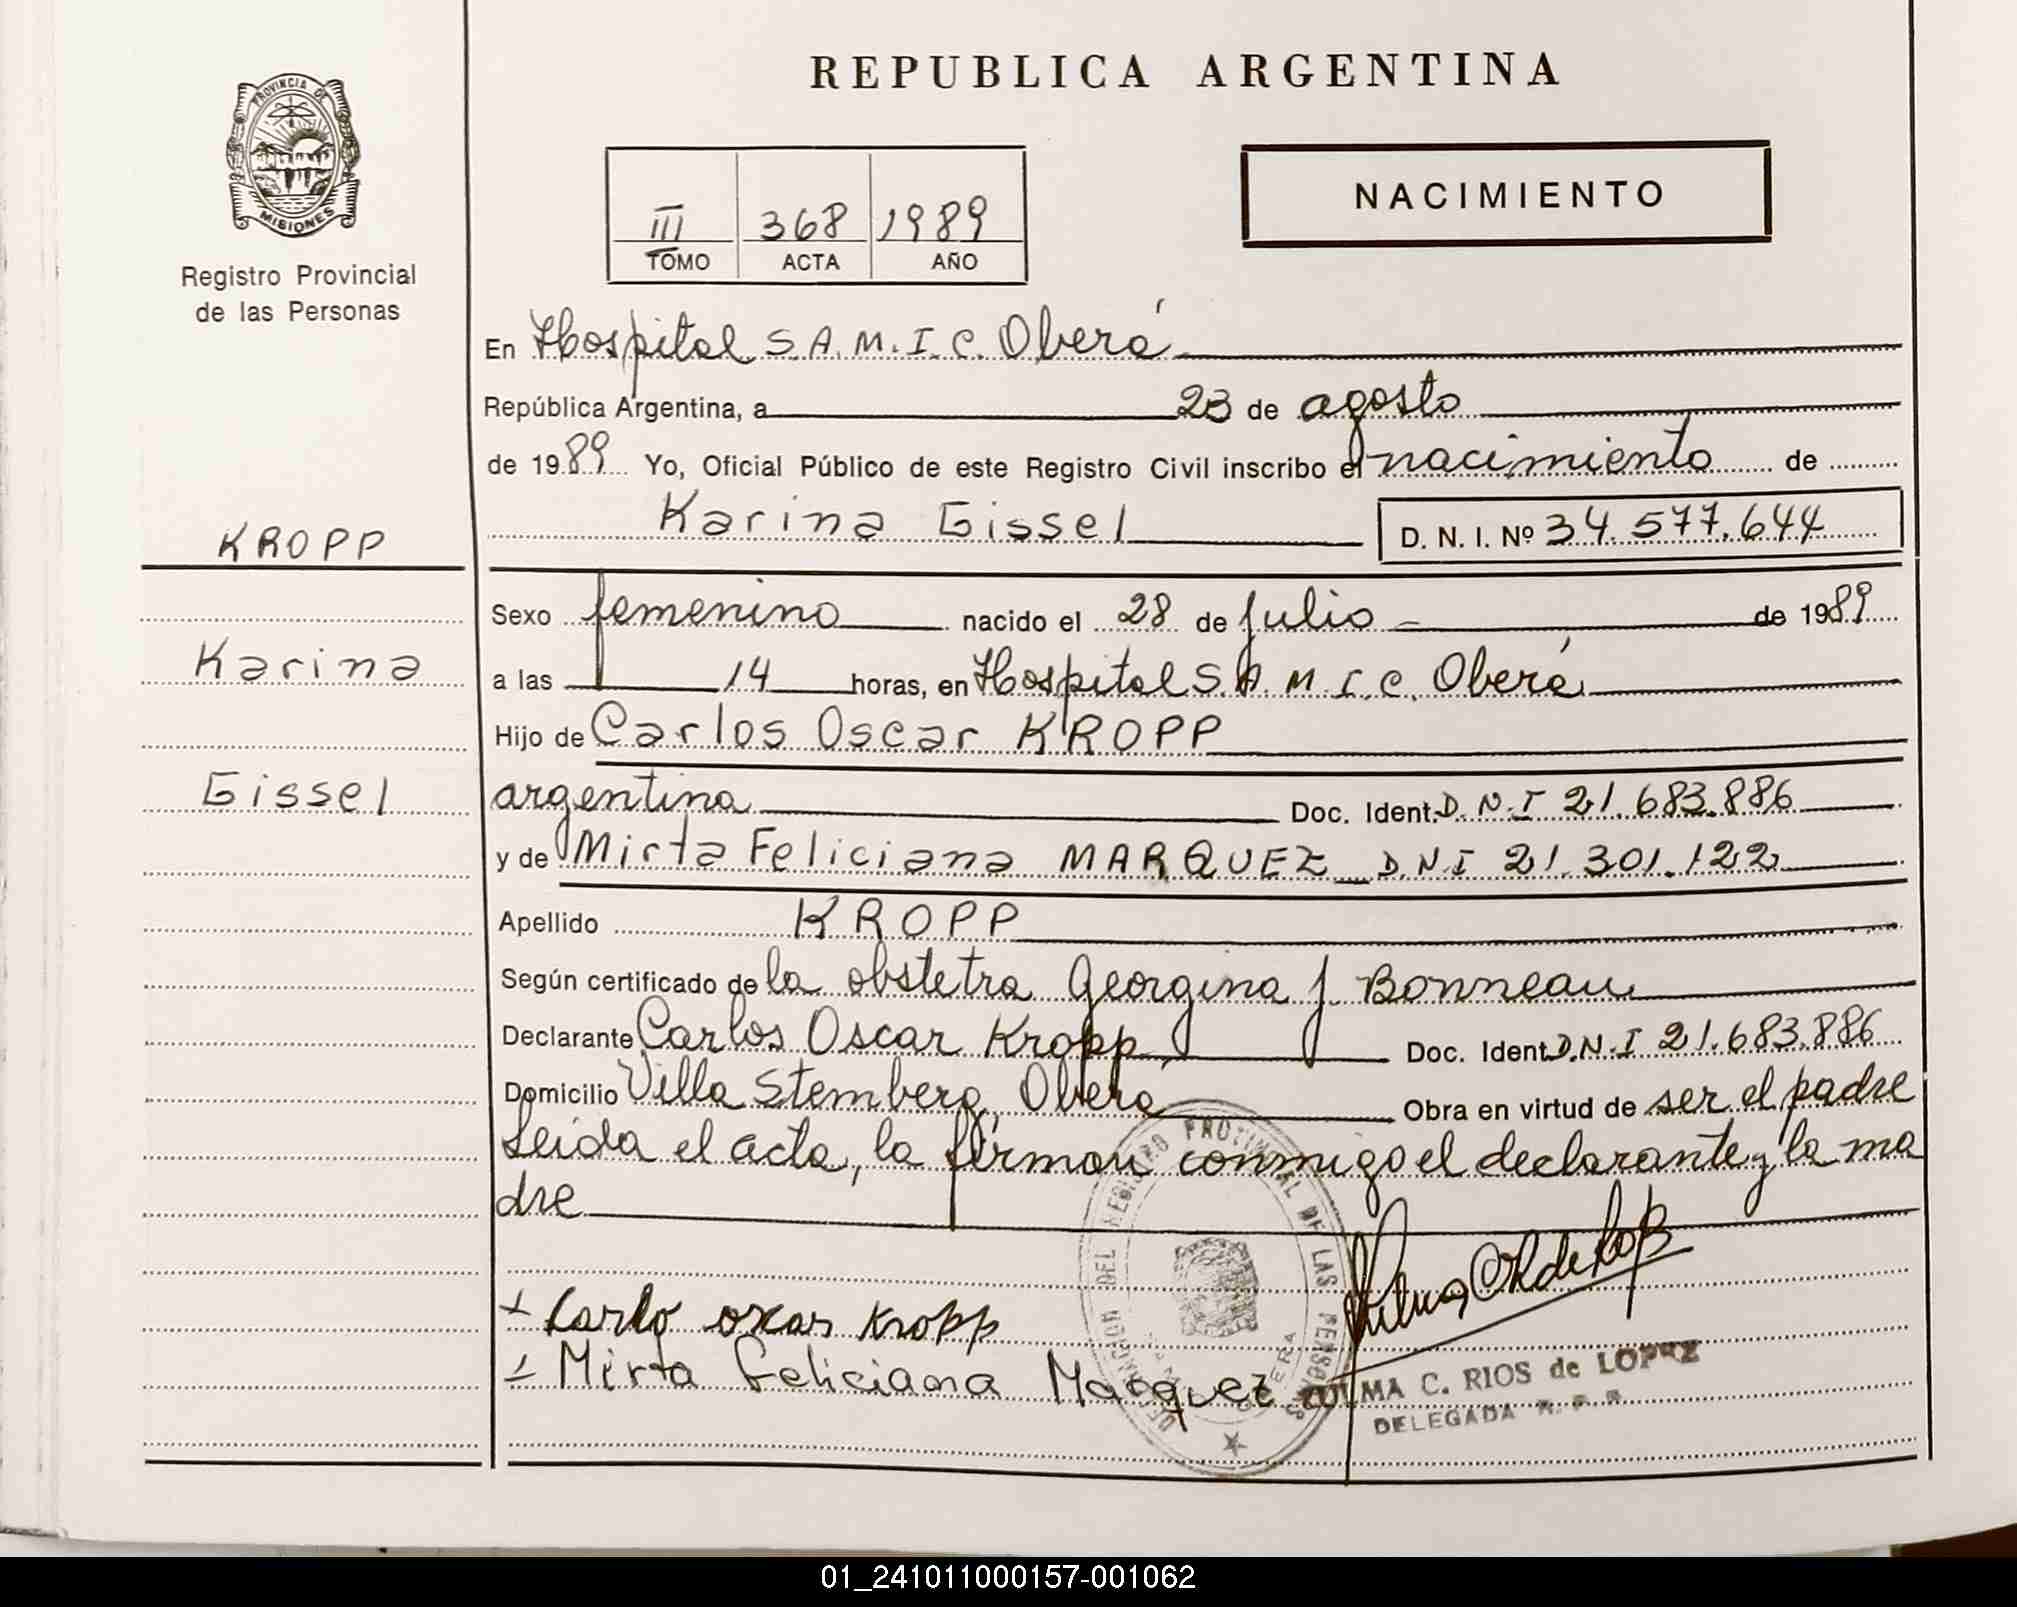 REPUBLICA ARGENTINA
PROVINCIA DE
MISIONES
Registro Provincial
de las Personas
NACIMIENTO
III 368 1989
TOMO ACTA AÑO
En Hospital S.A.M.I.C. Oberá
República Argentina, a 23 de agosto
de 1989 Yo, Oficial Público de este Registro Civil inscribo el nacimiento de
Karina Gissel D.N.I. Nº 34.577.644
KROPP
Karina
Gissel
Sexo femenino nacido el 28 de julio de 1989
a las 14 horas, en Hospital S.A.M.I.C. Oberá
Hijo de Carlos Oscar KROPP
argentina Doc. Ident. D.N.I 21.683.886
y de Mirta Feliciana MARQUEZ D.N.I 21.301.122
Apellido KROPP
Según certificado de la obstetra Georgina J. Bonneau
Declarante Carlos Oscar Kropp Doc. Ident. D.N.I 21.683.886
Domicilio Villa Stemberg, Oberá Obra en virtud de ser el padre
Leida el acta, la firman conmigo el declarante y la ma
dre
Carlo oscar Kropp
Mirta Feliciana Marquez
DEL REGISTRO PROVINCIAL DE LAS PERSONAS
OBERA
ZULMA C. RIOS de LOPEZ
DELEGADA R. P. P.
01_241011000157-001062